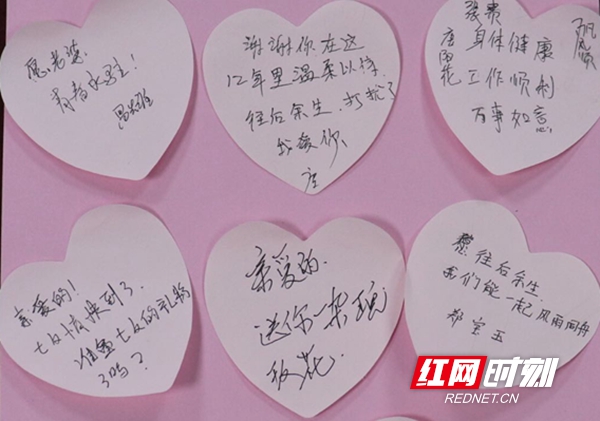 愿老婆.
青春永驻!
谢谢你在这
12年里温柔以待
往后余生.打扰了
我爱你.
身体健康
工作顺利
万事如意
亲爱的!
七夕情快到了.
准备七夕的礼物
了吗?
亲爱的.
送你一朵玫
瑰花.
愿往后余生.
我们能一起风雨同舟
郑宝玉
红网时刻
REDNET.CN